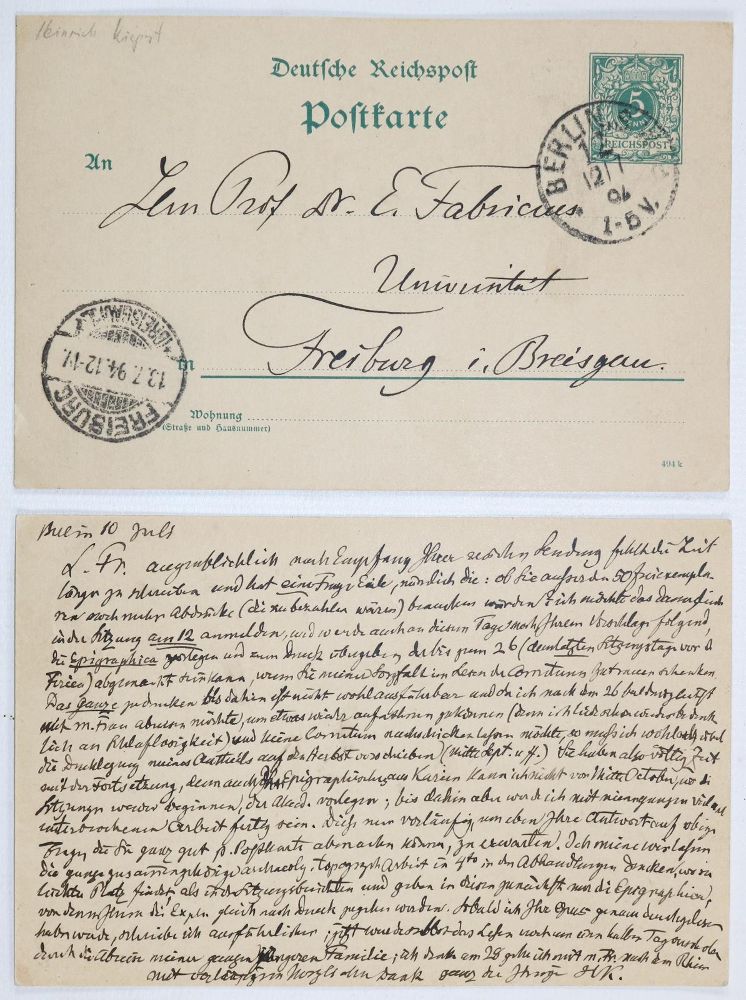 Heinrich Kiepert
Deutsche Reichspost
Postkarte
5
PFENNIG
REICHSPOST
BERLIN
12/7
94
1-5 V.
An
Herrn Prof. Dr. E. Fabricius
Universität
in Freiburg i. Breisgau.
FREIBURG
13.7.94.12-1V.
(BREISGAU)
Wohnung
(Straße und Hausnummer)
494 k
Berlin 10 Juli
L. Fr. augenblicklich nach Empfang Ihrer Sendung fehlt die Zeit
länger zu schreiben und hat eine Frage Eile, nämlich die: ob Sie außer den 50 Freiexempla-
ren noch mehr Abdrücke (die zu bezahlen wären) brauchen würden? ich möchte das
in der Sitzung am 12 anmelden, und werde auch an diesem Tage nach Ihrem Vorschlage folgend,
die Epigraphica vorlegen und zum Druck übergeben, der bis zum 26 (dem letzten Sitzungstage vor d.
Ferien) abgemacht sein kann, wenn Sie meiner Sorgfalt im Lesen der Correcturen Zutrauen schenken.
Das ganze zu drucken bis dahin ist nicht wohl ausführbar und da ich nach dem 26 
mit m. Frau abreisen möchte, um etwas wieder aufathmen zu können (denn ich leide schon
an Schlaflosigkeit) und keine Correctur nachschicken lassen möchte, so muss ich wohl
die Drucklegung meines Antheils auf den Herbst verschieben (Mitte Sept. u. ff.) Sie haben also völlig Zeit
mit der Fortsetzung, denn auch das Epigraphische aus Karien kann ich nicht vor Mitte October, wo die
Sitzungen wieder beginnen, der Akad. vorlegen; bis dahin aber werde ich mit meiner ganzen
unterbrochenen Arbeit fertig sein. Dies nur vorläufig, um eben Ihre Antwort auf obige
Frage, die Sie ganz gut p. Postkarte abmachen können, zu erwarten. Ich meine wir lassen
die ganze zusammengehörige archaeolog. topograph. Arbeit in 4to in den Abhandlungen drucken, wo sie
leichter Platz findet als in den Sitzungsberichten und geben in diesen zunächst nur die Epigraphica,
von denen Ihnen die Expln. gleich nach Druck zugehen werden. Sobald ich Ihr Opus genau durchgelesen
haben werde, schreibe ich ausführlicher; jetzt wurde das Lesen mehr als einen halben Tag
durch die Abreise meiner ganzen jüngeren Familie; ich denke am 28 gehe ich mit m. Fr. nach dem Rhein
mit vorläufigem herzlichen Dank ganz der Ihrige HK.